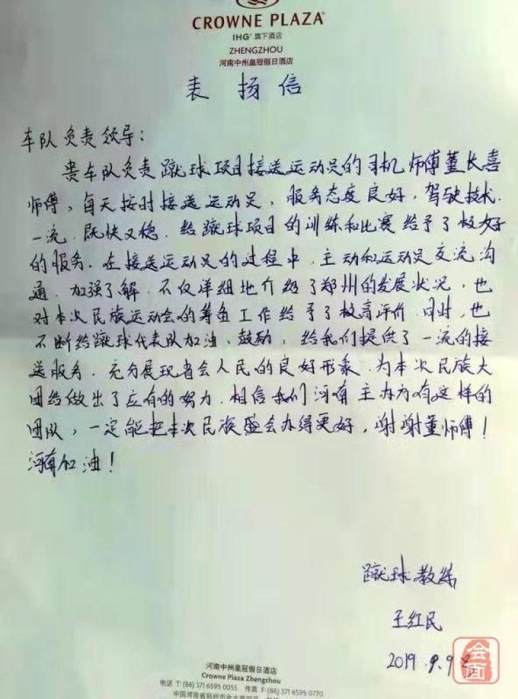 CROWNE PLAZA
IHG® 旗下酒店
ZHENGZHOU
河南中州皇冠假日酒店
表扬信
车队负责领导：
贵车队负责蹴球项目接送运动员的司机师傅董长喜
师傅，每天按时接送运动员，服务态度良好，驾驶技术
一流，既快又稳，给蹴球项目的训练和比赛给予了极好
的服务。在接送运动员的过程中，主动向运动员交流沟
通，加强了解，不仅详细地介绍了郑州的发展状况，也
对本次民族运动会的筹备工作给予了极高评价，同时，也
不断给蹴球代表队加油、鼓励，给我们提供了一流的接
送服务，充分展现省会人民的良好形象，为本次民族大
团结做出了应有的努力，相信我们河南主办方有这样的
团队，一定能把本次民族盛会办得更好，谢谢董师傅！
河南加油！
蹴球教练
王红民
2019.9.9
会面
河南中州皇冠假日酒店
Crowne Plaza Zhengzhou
电话 T: (86) 371 6595 0055 传真 F: (86) 371 6599 0770